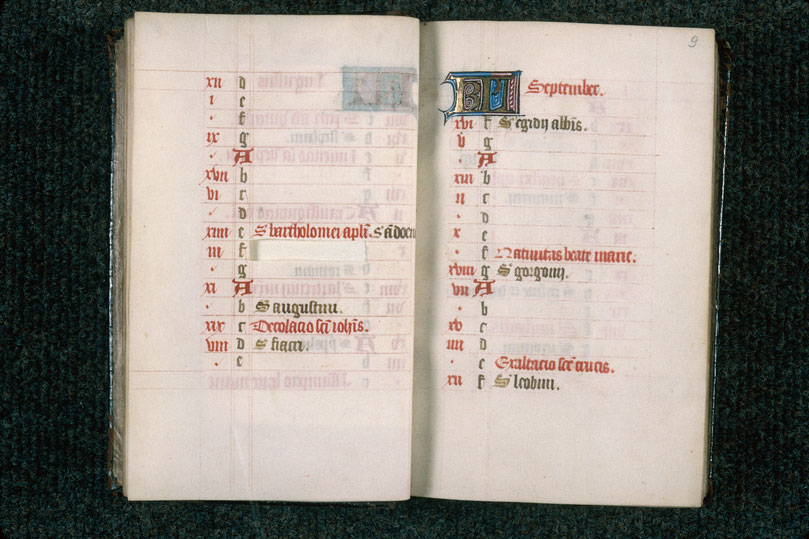 xii d
i e
. f
ix g
. A
xvii b
vi c
. d
xiiii e S bartholomei apli. S
iii f
. g
xi A
. b S augustini.
xix c Decolacio scī ioh̄is.
viii d S fiacri.
. e
9
KL September.
xvi f S egidij abb̄is.
v g
. A
xiii b
ii c
. d
x e
. f Natiuitas beate marie.
xviii g S gorgonij.
vii A
. b
xv c
iiii d
. e Exaltacio scē crucis.
xii f S leobini.